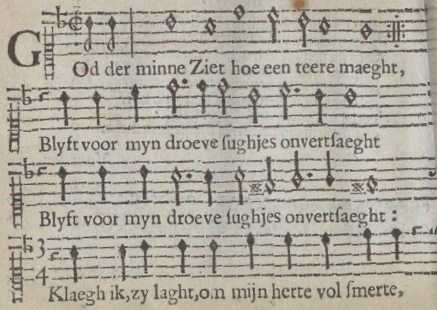 God der minne Ziet hoe een teere maeght,
Blyft voor myn droeve ſughjes onvertſaeght
Blyft voor myn droeve ſughjes onvertſaeght :
3
4
Klaegh ik, zy laght, o.n mijn herte vol ſmerte,